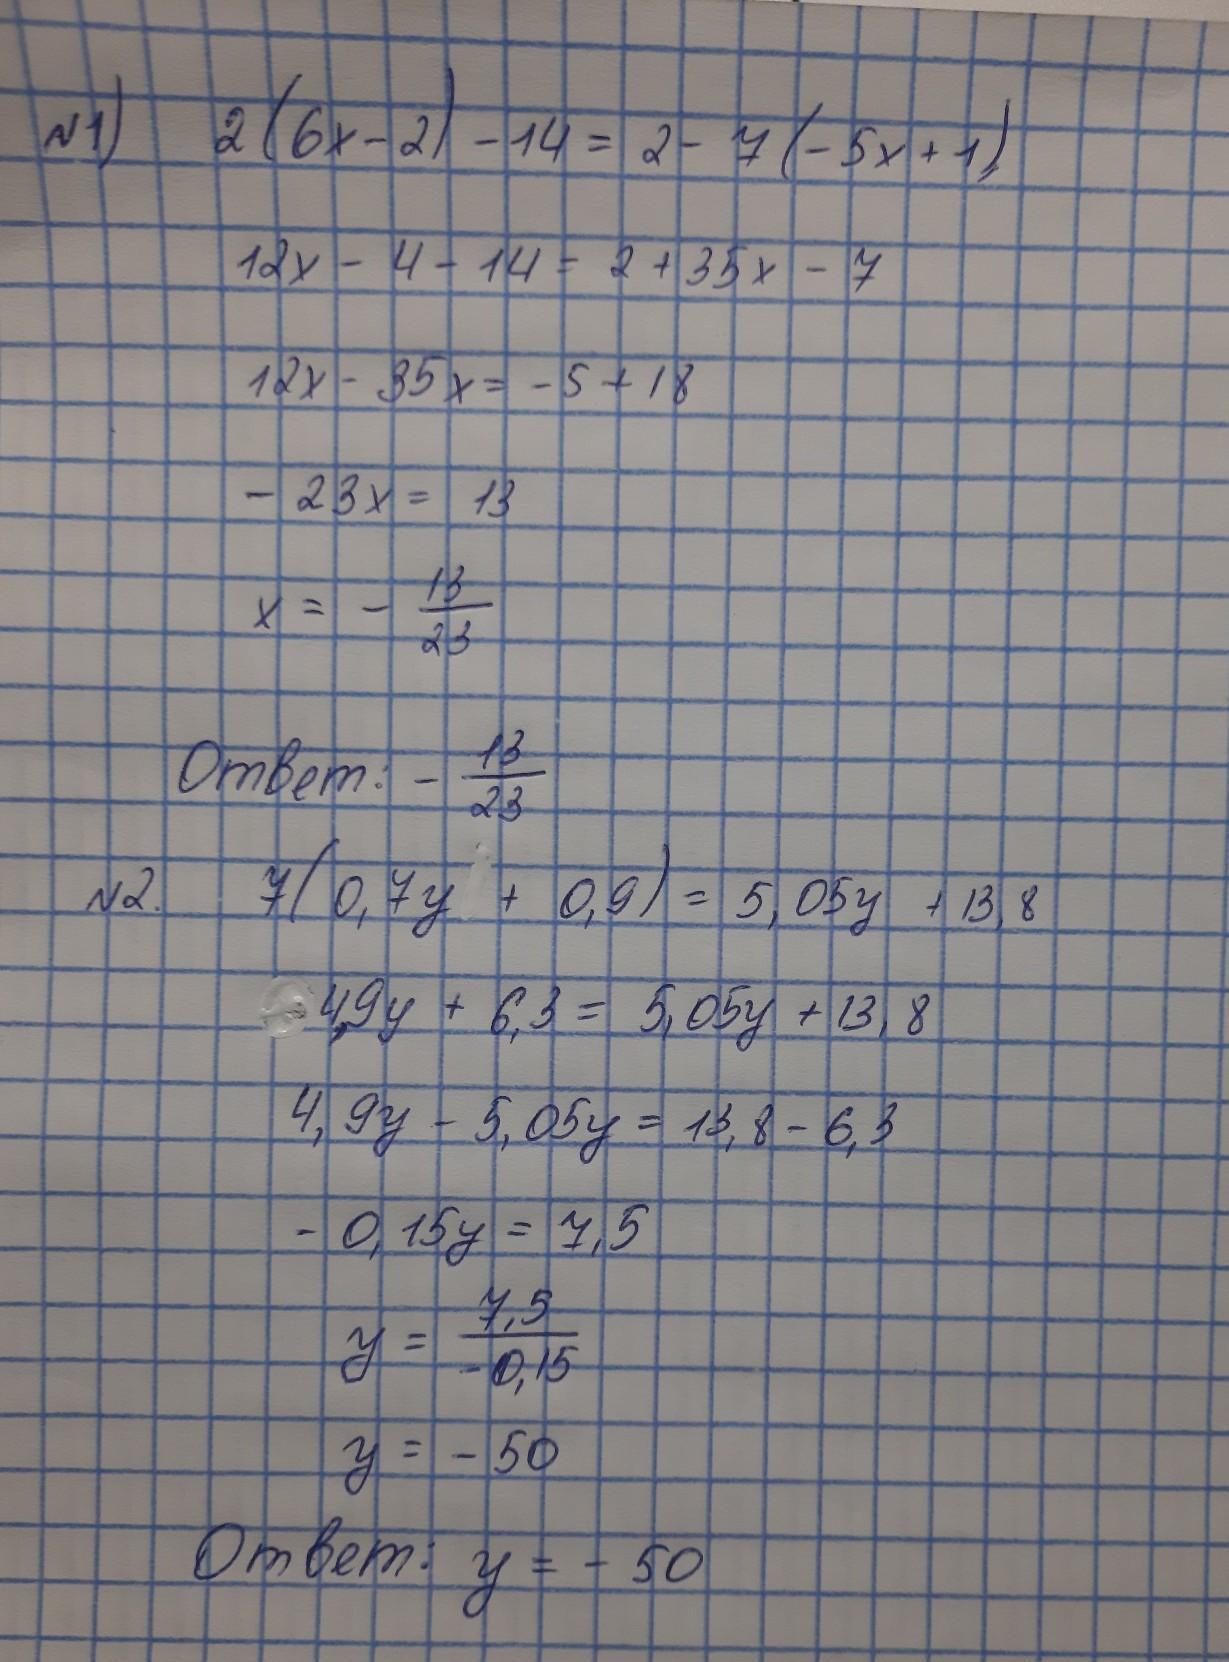 №1) 2(6x-2)-14= 2-7(-5x+1)
12x-4-14=2+35x-7
12x-35x=-5+18
-23x= 13
x = - 13/23
Ответ: - 13/23
№2. 7(0,7y + 0,9)= 5,05y +13,8
4,9y + 6,3= 5,05y +13,8
4,9y - 5,05y = 13,8-6,3
- 0,15y = 7,5
y = 7,5/-0,15
y = - 50
Ответ: y = - 50